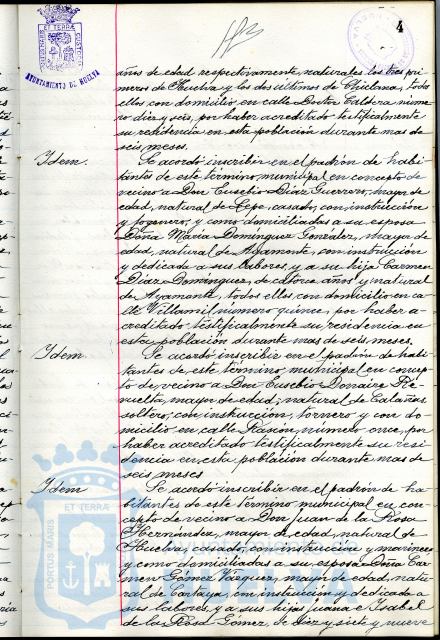 4
AYUNTAMIENTO DE HUELVA
años de edad respectivamente, naturales los tres pri
meros de Huelva y los dos últimos de Chiclana, todos
ellos con domicilio en calle Doctor Caldera núme
ro diez y seis, por haber acreditado testificalmente
su residencia en esta población durante mas de
seis meses.
Idem. Se acordó inscribir en el padrón de habi
tantes de este término municipal en concepto de
vecino a Don Eusebio Diaz Guerrero, mayor de
edad, natural de Lepe, casado, con instrucción
y fogonero, y como domiciliadas a su esposa
Doña María Domínguez González, mayor de
edad, natural de Ayamonte, con instrucción
y dedicada a sus labores, y a su hija Carmen
Diaz Domínguez, de catorce años y natural
de Ayamonte, todos ellos con domicilio en ca
lle Villamil numero quince, por haber a-
creditado testificalmente su residencia en
esta población durante mas de seis meses.
Idem. Se acordó inscribir en el padrón de habi
tantes de este término municipal en concep
to de vecino a Don Eusebio Domaire
vuelta, mayor de edad, natural de Calañas
soltero, con instrucción, tornero y con do
micilio en calle Rascón, número once, por
haber acreditado testificalmente su resi
dencia en esta población durante mas de
seis meses.
Idem Se acordó inscribir en el padrón de ha-
bitantes de este término municipal en con
cepto de vecino a Don Juan de la Rosa
Hernández, mayor de edad, natural de
Huelva, casado, con instrucción y marinero
y como domiciliadas a su esposa Doña Car
men Gómez Vázquez, mayor de edad, natu
ral de Cartaya con instrucción y dedicada a
sus labores, y a sus hijas Juana e Isabel
de la Rosa Gómez, de diez y siete y nueve
PORTUS MARIS ET TERRAE